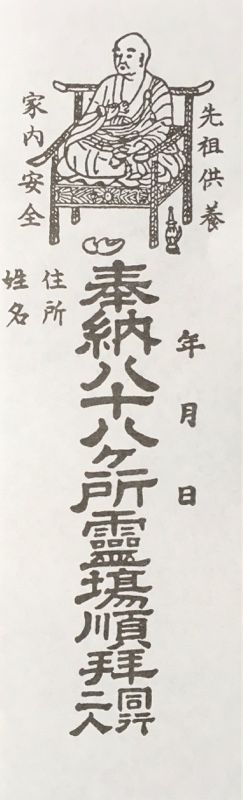 先祖供養
家内安全
年月日
奉納八十八ヶ所靈場順拝
同行
二人
住所
姓名